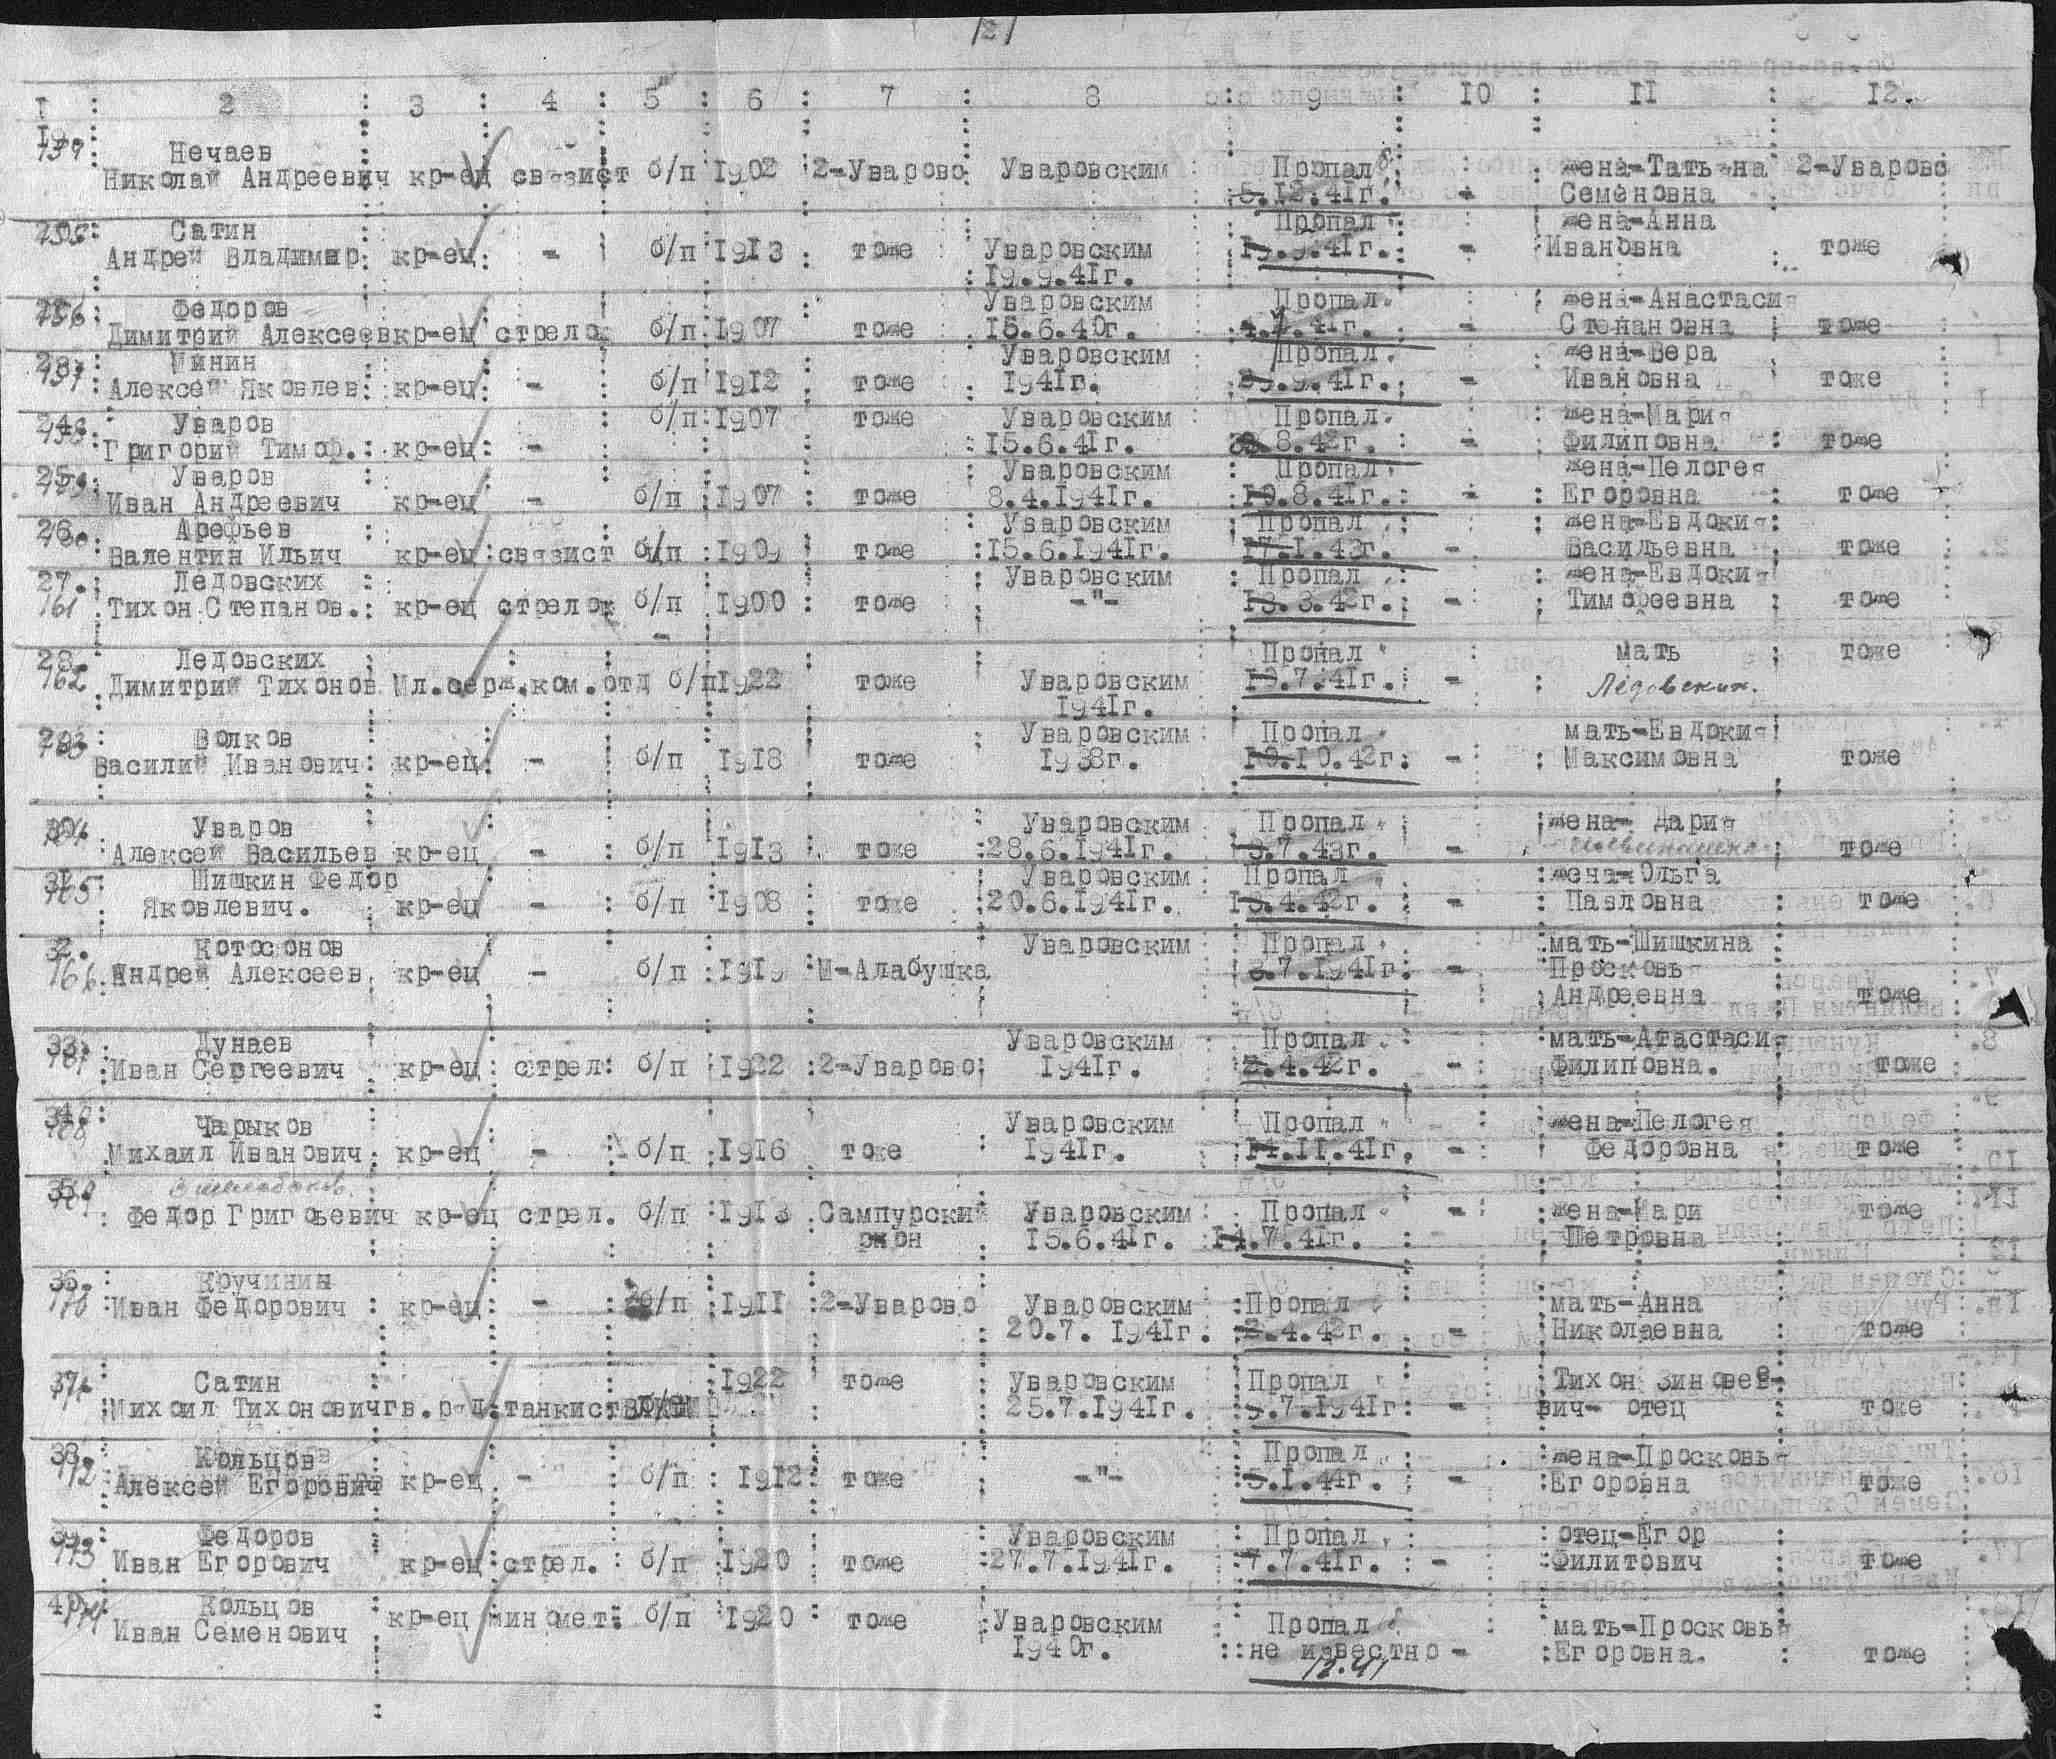 121
1 2 3 4 5 6 7 8 9 10 11 12.
Нечаев
Николай Андреевич кр-ец связист б/п 1902 2-Уварово Уваровским Пропал жена-Татьяна 2-Уварово
5.12.41г. - Семеновна
Сатин Пропал жена-Анна
Андрей Владимир. кр-ец - б/п 1913 тоже Уваровским 19.9.41г. - Ивановна тоже
19.9.41г.
156 Федоров Уваровским Пропал жена-Анастасия
Димитрий Алексеев кр-ец стрелок б/п 1907 тоже 15.6.40г. 41г. - Степановна тоже
157 Минин Уваровским Пропал. жена-Вера
Алексей Яковлев. кр-ец - б/п 1912 тоже 1941г. 9.41г. - Ивановна тоже
24. Уваров б/п 1907 тоже Уваровским Пропал. жена-Мария
Григорий Тимоф. кр-ец - 15.6.41г. 8.42г. - Филиповна тоже
25. Уваров Уваровским Пропал жена-Пелогея
Иван Андреевич кр-ец - б/п 1907 тоже 8.4.1941г. 19.8.41г. - Егоровна тоже
26. Арефьев Уваровским Пропал жена-Евдокия
Валентин Ильич кр-ец связист б/п 1909 тоже 15.6.1941г. 17.1.43г. - Васильевна тоже
27. Ледовских Уваровским Пропал жена-Евдокия
161 Тихон Степанов. кр-ец стрелок б/п 1900 тоже -"- 13.3.42г. - Тимофеевна тоже
28. Ледовских Пропал мать тоже
162 Димитрий Тихонов Мл.серж.ком.отд б/п 1922 тоже Уваровским 19.7.41г. - Ледовских.
1941г.
29. Волков Уваровским Пропал мать-Евдокия
Василий Иванович кр-ец - б/п 1918 тоже 1938г. 10.10.42г. - Максимовна тоже
Уваров Уваровским Пропал жена- Дария
Алексей Васильев кр-ец - б/п 1913 тоже 28.6.1941г. 3.7.43г. - тоже
165 Шишкин Федор Уваровским Пропал жена-Ольга
Яковлевич. кр-ец - б/п 1908 тоже 20.6.1941г. 13.4.42г. - Павловна тоже
32. Котосонов Уваровским Пропал мать-Шишкина
166 Андрей Алексеев. кр-ец - б/п 1919 М-Алабушка 3.7.1941г. - Просковья
Андреевна тоже
33. Дунаев Уваровским Пропал мать-Атастасия
167 Иван Сергеевич кр-ец стрел. б/п 1922 2-Уварово 1941г. 2.4.42г. - Филиповна. тоже
34. Чарыков Уваровским Пропал жена-Пелогея
168 Михаил Иванович. кр-ец - б/п 1916 тоже 1941г. 14.11.41г. - Федоровна тоже
169 Федор Григоьевич кр-ец стрел. б/п 1913 Сампурский Уваровским Пропал - жена-Мари тоже
он 15.6.41г. 14.7.41г. Петровна
36. Кручинин
170 Иван Федорович кр-ец - б/п 1911 2-Уварово Уваровским Пропал мать-Анна
20.7. 1941г. 2.4.42г. - Николаевна тоже
37. Сатин 1922 тоже Уваровским Пропал Тихон Зиновее-
Михоил Тихонович гв.р-д. танкист 25.7.1941г. 5.7.1941г - вич- отец тоже
38. Кольцов Пропал жена-Просковья
172 Алексей Егорович кр-ец - б/п 1912 тоже -"- 5.1.44г. - Егоровна тоже
Федоров Уваровским Пропал отец-Егор
173 Иван Егорович кр-ец стрел. б/п 1920 тоже 27.7.1941г. 7.7.41г. - Филитович тоже
Кольцов
Иван Семенович кр-ец миномет. б/п 1920 тоже Уваровским Пропал мать-Просковья
1940г. не известно - Егоровна. тоже
12.41